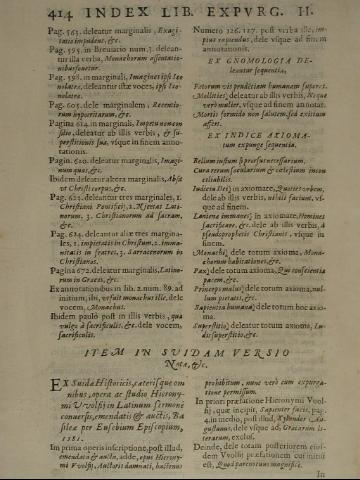 414 INDEX LIB. EXPVRG. II.
Pag. 563. deleatur marginalis, Exagi-
Pag. 595. in Breuiario num. 3. delean-
tur illa verba, Monachorum ostentatio-
Pag. 598. in marginali, Imagines ipsæ Ico
nolatræ, deleantur istæ voces, ipsæ Ico-
nolatræ.
Pag. 605. dele marginalem, Recentio-
rum hypocritarum, &c.
Pagina 614. in marginali,
deleatur ab illis verbis, & su-
perstitiosis suis, vsque in finem anno-
tationis.
Pagin. 620. deleatur marginalis, Imagi-
num quas, &c.
Ibidem deleatur altera marginalis, Absu
ut Christi corpus, &c.
Pag. 622. deleatur tres marginales, 1.
Christiani Pontificij, 2.
3. Christianorum ad sacram,
&c.
Pag. 624. deleantur aliæ tres margina-
les, 1. impietatis in Christum. 2. imma-
nitatis in fratres. 3. Sarracenorum in
Christianos.
Pagina 672. deleatur marginalis, Latino-
rum in Græcos, &c.
Ex annotationibus in lib. 2. num. 89. ad
initium, ibi, vt fuit monachus ille, dele
vocem, Monachus.
Ibidem paulò post in illis verbis, qua
vulgò à sacrificulis. &c. dele vocem,
sacrificulis.
Numero 226. 127. post verba ille, im-
pius repudiat, dele vsque ad finem
annotationis.
EX GNOMOLOGIA DE-
leantur sequentia,
Mollities] deleatur ab illis verbis, Neque
verò mulier, vsque ad finem annotat.
Mortis formido non salutem, sed exitium
affert.
EX INDICE AXIOMA-
tum expunge sequentia.
Bellum iustum & pium & necessarium.
Cura rerum secularium & cœlestium incom
Iudicia Dei] in axiomate, Quiete orbem,
dele ab illis verbis, nobis faciunt, vs-
que ad finem.
Laniena immanes] in axiomate, Homines
sacrificare, &c. dele ab illis verbis, à
pseudoprophetis Christianis, vsque in
finem.
Monachi] dele totum axioma, Mona-
chorum habitationes, &c.
Pax] dele totum axioma, Qua conscientia
pacem, &c.
Principes mulus] dele totum axioma, nul-
lum pietati, &c.
Sapientia humana] dele totum hoc axio-
ma.
Superstitio] deleatur totum axioma, Lu-
dis superstitio, &c.
ITEM IN SVIDAM VERSIO
Nota, &c.
EX Suida Historicis, cæterisque om
nibus, opera ac studio Hierony-
mi VVolfij in Latinum sermonem
conuersis, emendatis & auctis, Ba-
sileæ per Eusebium Episcopium,
1581.
In prima operis inscriptione, post illud,
emendata & aucta, adde, opus Hierony-
mi VVolfij, Auctoris damnati, hactenus
prohibitum, nunc verò cum expurga-
tione permissum.
In priori præfatione Hieronymi VVol-
fij, quæ incipit, Sapienter facit, pag.
4. in medio, post illud, Xystander Au-
gustanus, dele vsque ad, Græcarum li-
terarum, exclus.
Deinde, dele totam posteriorem eius-
dem VVolfij præfationem cui initiū
est, Quod parentum magnificè.
In